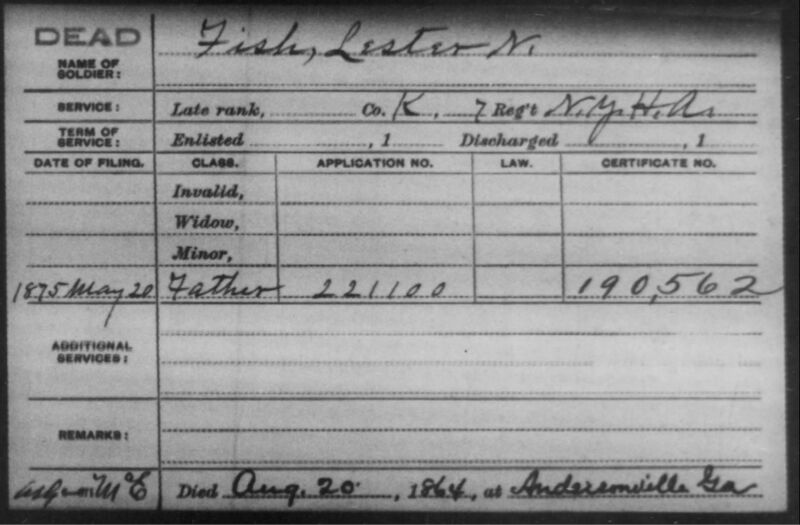 DEAD
Fish, Lester N.
NAME OF
SOLDIER:
SERVICE: Late rank, Co. K, 7 Reg't N.Y.H.A.
TERM OF
SERVICE: Enlisted , 1 Discharged , 1
DATE OF FILING. CLASS. APPLICATION NO. LAW. CERTIFICATE NO.
Invalid,
Widow,
Minor,
1875 May 20 Father 221100 190,562
ADDITIONAL
SERVICES:
REMARKS:
McE Died Aug. 20, 1864, at Andersonville Ga